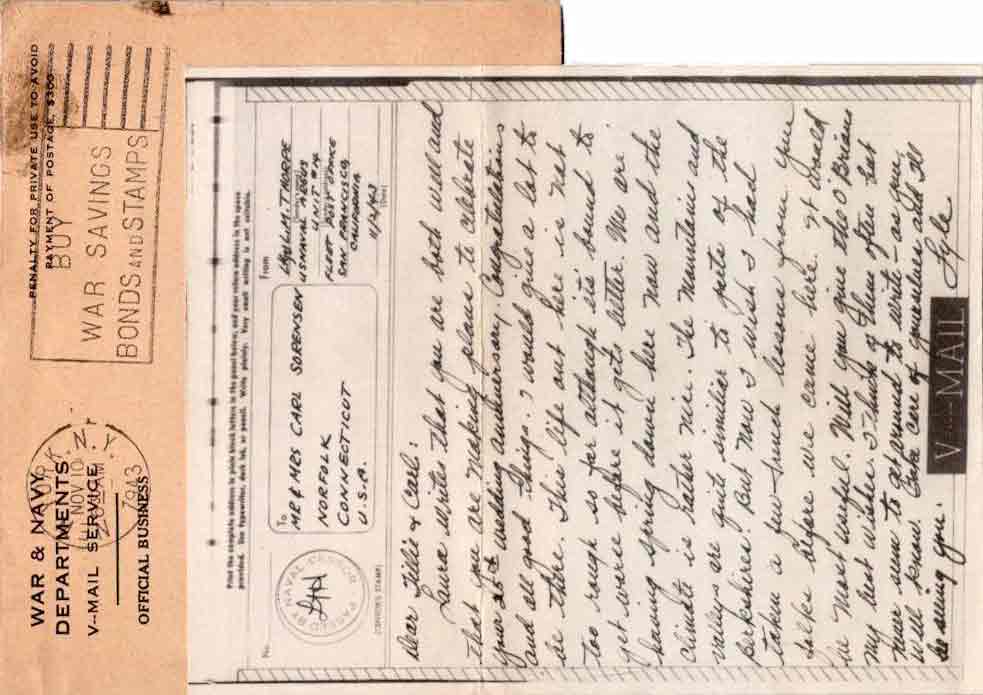 WAR & NAVY
DEPARTMENTS
V-MAIL SERVICE
OFFICIAL BUSINESS
PENALTY FOR PRIVATE USE TO AVOID
PAYMENT OF POSTAGE, $300
N.Y.
NOV 10
1943
BUY
WAR SAVINGS
BONDS AND STAMPS
Print the complete address in plain block letters in the panel below, and your return address in the space
provided. Use typewriter, dark ink, or pencil. Write plainly. Very small writing is not suitable.
No.
PASSED BY NAVAL CENSOR
(CENSOR'S STAMP)
To
MR & MRS CARL SORENSEN
NORFOLK
CONNECTICOT
U.S.A.
From
L.M. THORPE
US NAVAL ADGRS
UNIT #14
FLEET POST OFFICE
SAN FRANCISCO
CALIFORNIA
11/2/43
(Date)
Dear Tillie & Carl:
Laura writes that you are both well and
that you are making plans to celebrate
your 25th wedding anniversary. Congratulations
and all good things. I would give a lot to
be there. This life out here is not
too rough so far although it's bound to
get worse before it gets better. We are
having spring down here now and the
climate is rather nice. The mountains and
valleys are quite similar to parts of the
Berkshires. But now I wish I had
taken a few French lessons from you
folks before we came here. It would
be most useful. Will you give the O'Briens
my best wishes. I think of them often but
never seem to get around to write - as you
well know. Take care of yourselves and I'll
be seeing you.
Lyle
V-MAIL